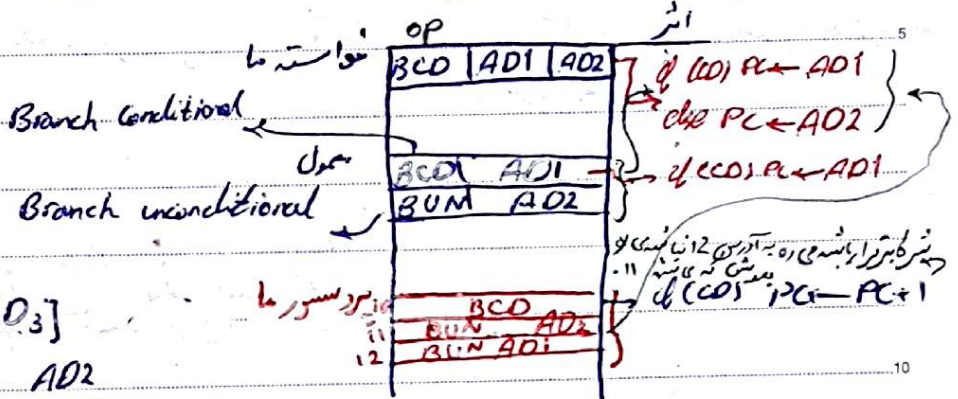 op اثر
5
خواسته ما BCD AD1 AD2 if (CD) PC ← AD1
else PC ← AD2
Branch conditional
معمول BCD1 AD1 if (CD) PC ← AD1
Branch unconditional BUN AD2
شرط برقرار باشه می ره به آدرس 12
11
دستور ما 10 BCD if (CD) PC ← PC+1
D3] 11 BUN AD2
12 BUN AD1
AD2
10